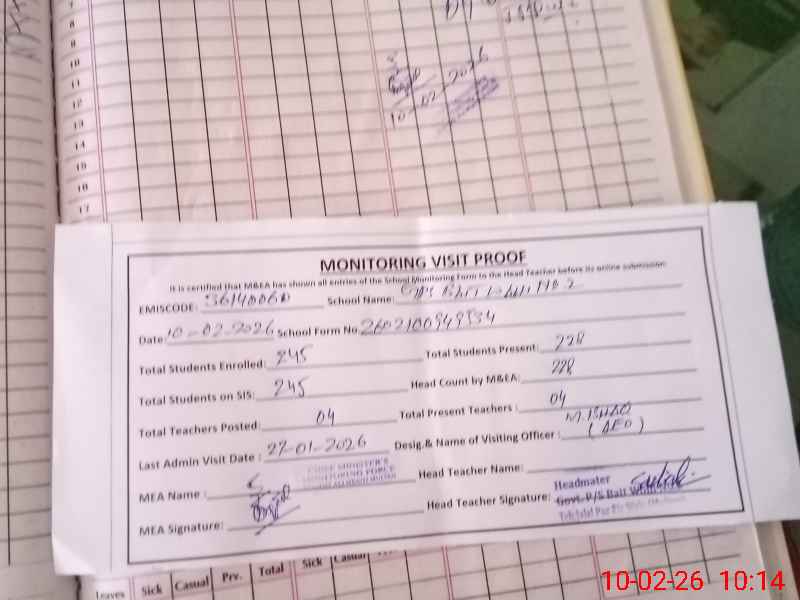 7
8
9
10
11
12
13
14
15
16
17
10-02-2026
MONITORING VISIT PROOF
It is certified that M&EA has shown all entries of the School Monitoring Form to the Head Teacher before its online submission.
EMISCODE: School Name: No. 2
Date: 10-02-2026 School Form No. 2602100949534
Total Students Enrolled: 245 Total Students Present: 228
Total Students on SIS: 245 Head Count by M&EA: 228
Total Teachers Posted: 04 Total Present Teachers : 04
Last Admin Visit Date : 27-01-2026 Desig.& Name of Visiting Officer : M. ISHAQ
(AEO)
CHIEF MINISTER'S
MONITORING FORCE
MEA Name : Head Teacher Name:
Headmater
MEA Signature: Head Teacher Signature: Govt. P/S Bait
leaves Sick Casual Prv. Total Sick Casual
10-02-26 10:14